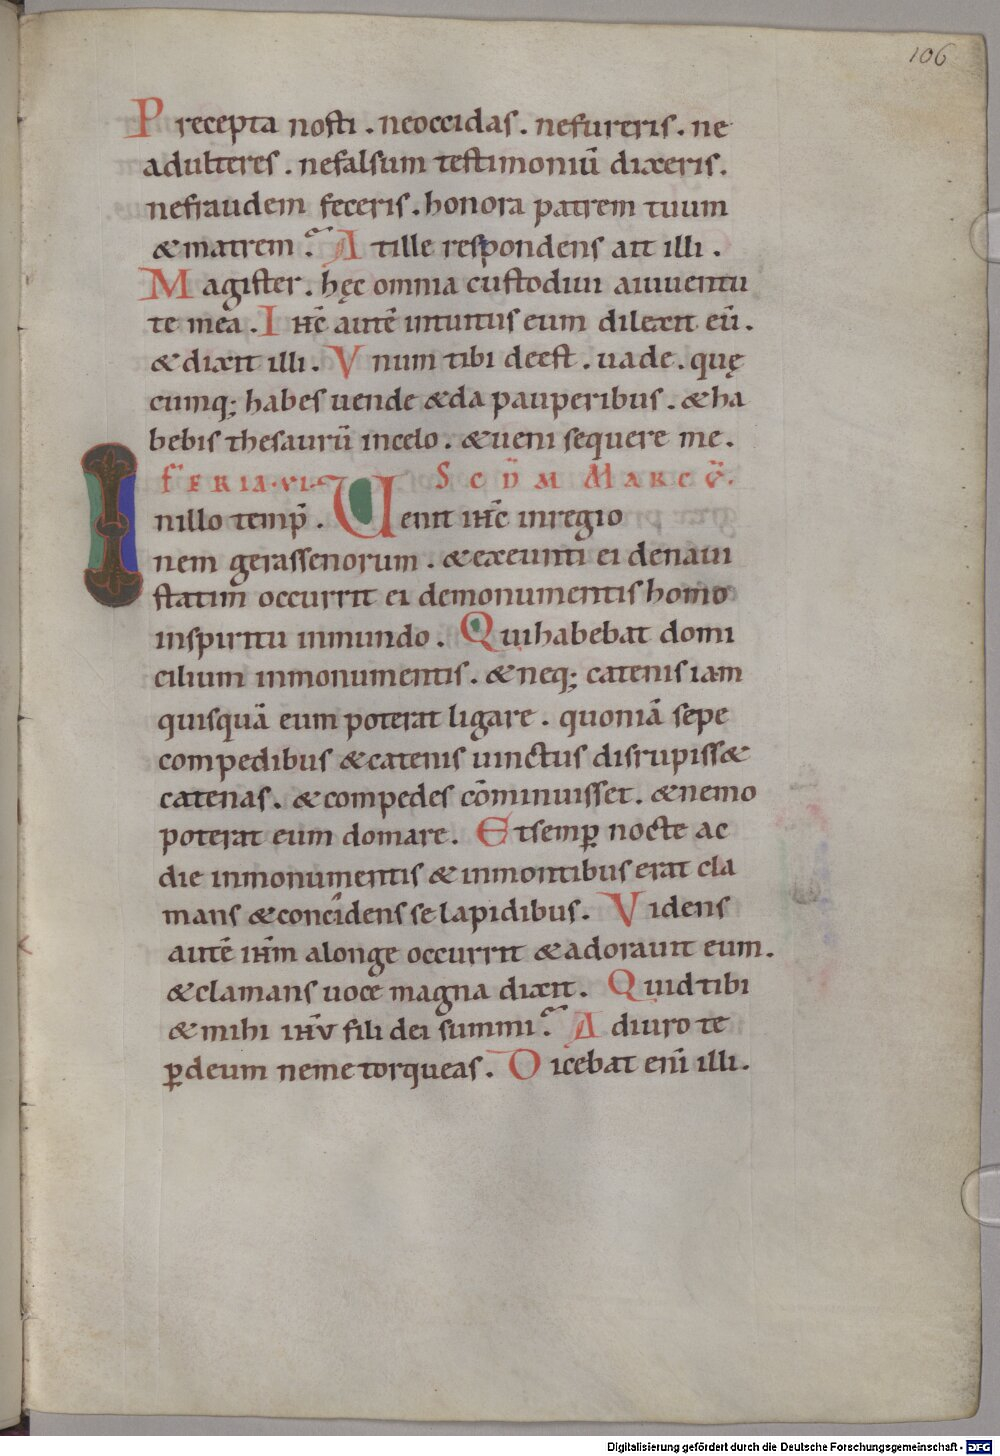 106
Precepta nosti . neoccidas . nefureris . ne
adulteres . nefalsum testimoniū dixeris .
nefraudem feceris . honora patrem tuum
& matrem . Atille respondens ait illi .
Magister . hęc omnia custodiui aiuuentu
te mea . Ihc̄ autē intuitus eum dilexit eū .
& dixit illi . Vnum tibi deest . uade . quę
cumq; habes uende &da pauperibus . &ha
bebis thesaurū incelo . &ueni sequere me .
FERIA · VI · SCDM MARCV̄ .
Inillo temp̄ . Uenit ihc̄ inregio
nem gerassenorum . &exeunti ei denaui
statim occurrit ei demonumentis homo
inspiritu inmundo . Quihabebat domi
cilium inmonumentis . &neq; catenis iam
quisquā eum poterat ligare . quoniā sepe
compedibus &catenis uinctus disrupiss&
catenas . &compedes cōminuisset . &nemo
poterat eum domare . Etsemꝑ nocte ac
die inmonumentis &inmontibus erat cla
mans &concidens se lapidibus . Videns
autē ihm̄ alonge occurrit &adorauit eum .
&clamans uoce magna dixit . Quid tibi
&mihi ihū fili dei summi . Adiuro te
ꝑdeum neme torqueas . Dicebat eni̅ illi .
Digitalisierung gefördert durch die Deutsche Forschungsgemeinschaft - DFG